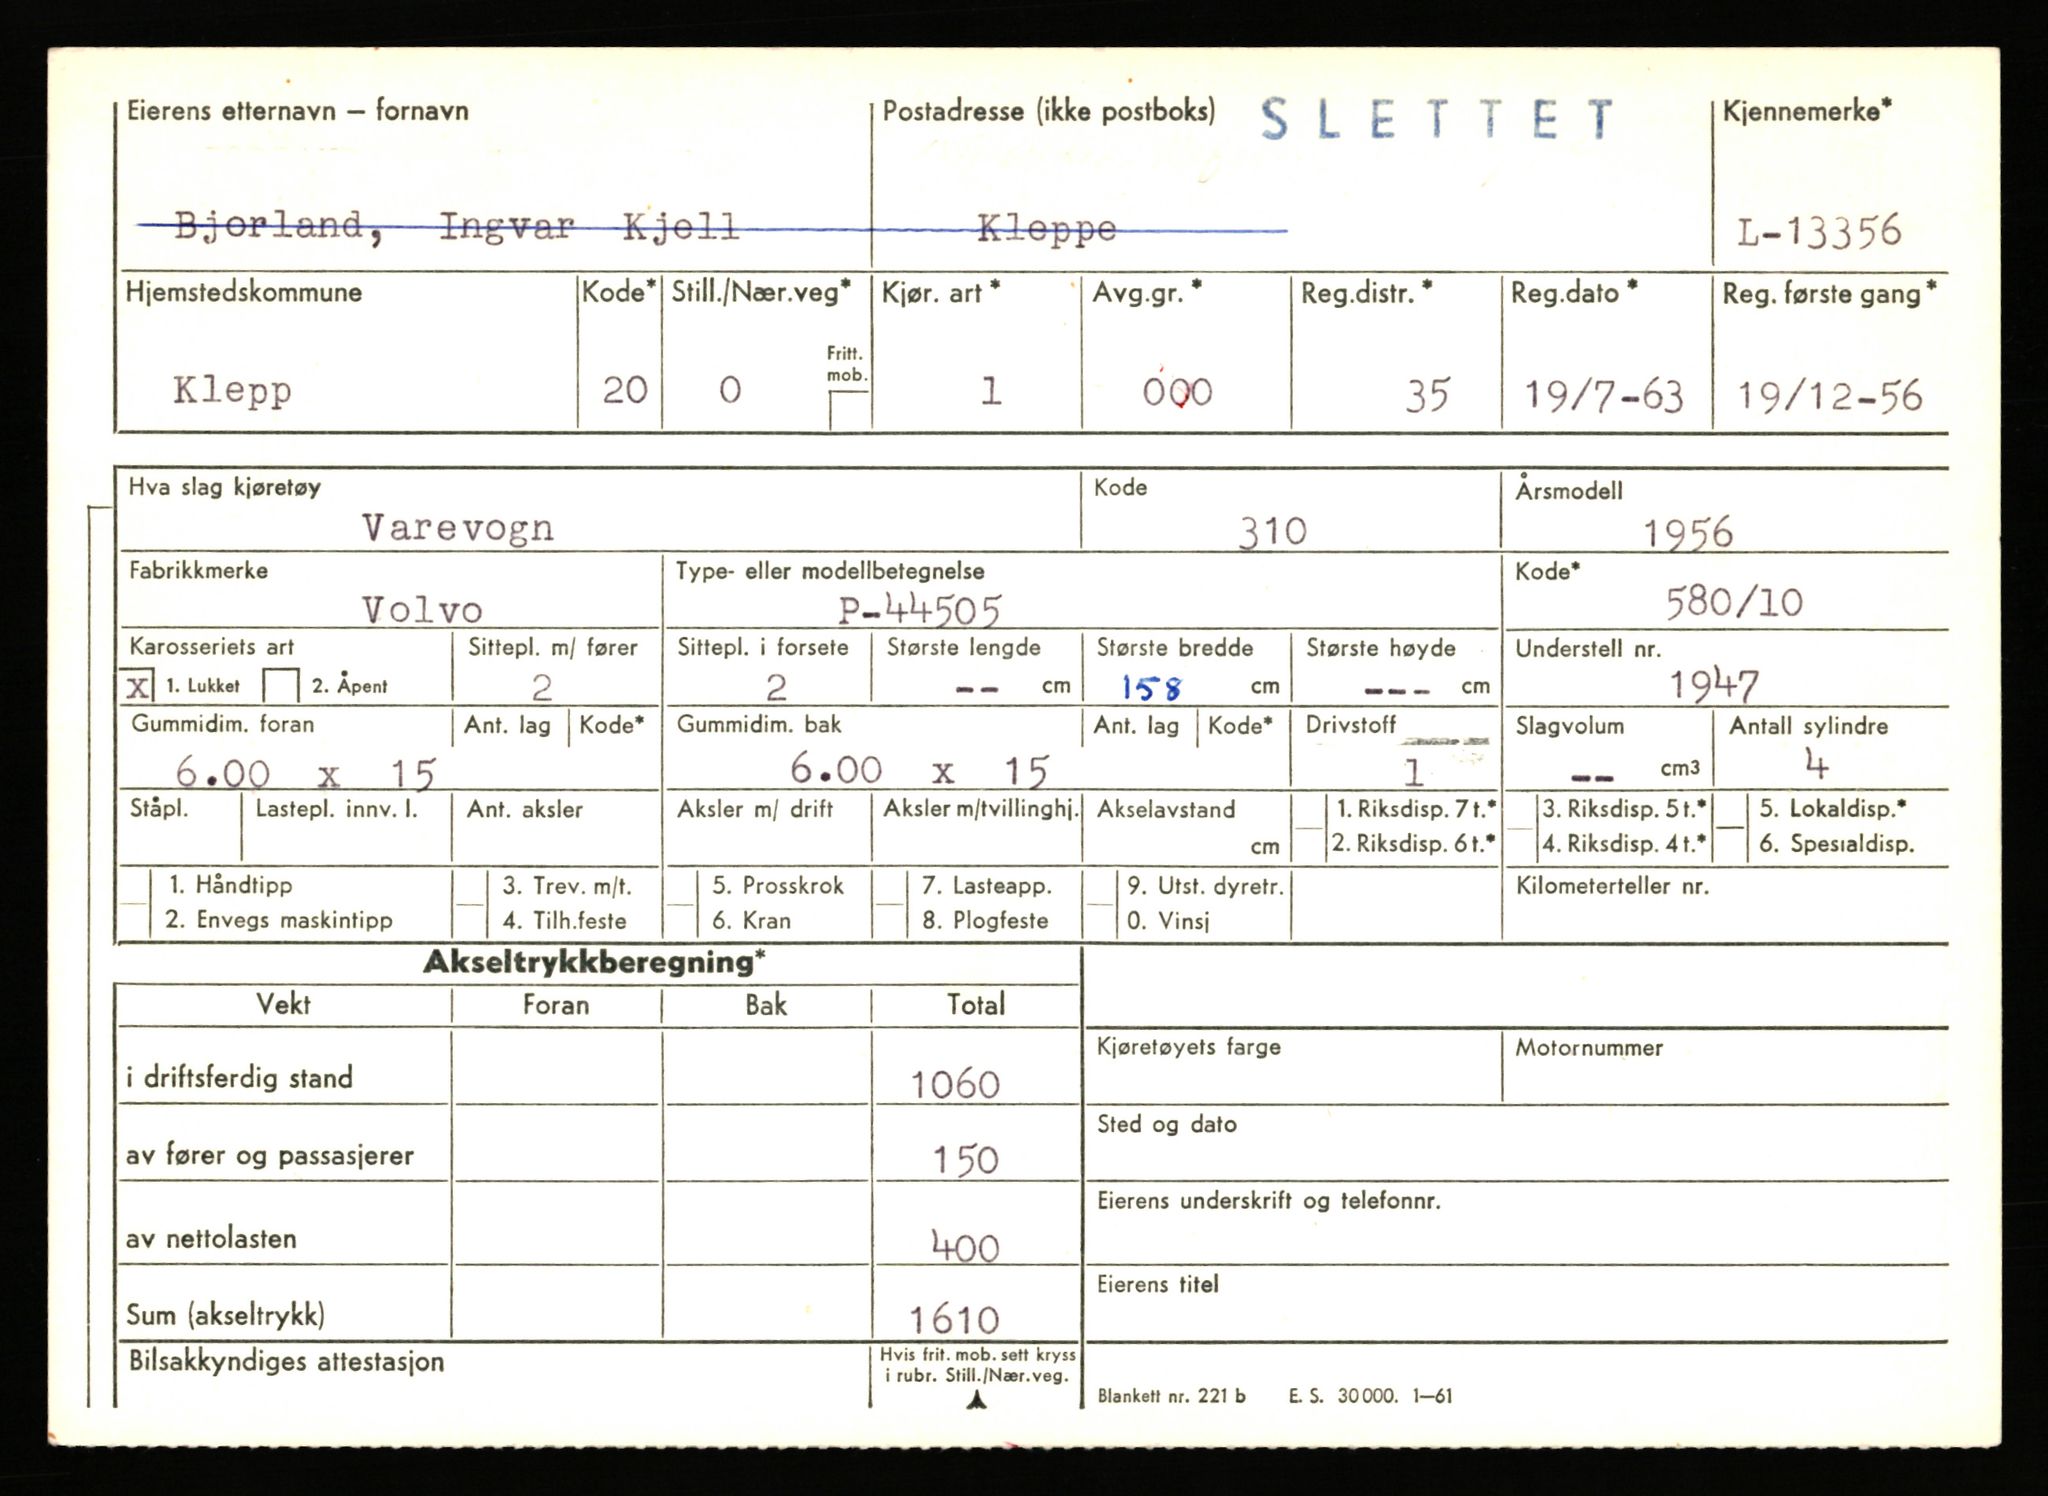 Eierens etternavn – fornavn Postadresse (ikke postboks) SLETTET Kjennemerke*
Bjorland, Ingvar Kjell Kleppe L-13356
Hjemstedskommune Kode* Still./Nær.veg* Kjør. art* Avg.gr.* Reg.distr.* Reg.dato* Reg. første gang*
Fritt.
mob.
Klepp 20 0 1 000 35 19/7-63 19/12-56
Hva slag kjøretøy Kode Årsmodell
Varevogn 310 1956
Fabrikkmerke Type- eller modellbetegnelse Kode*
Volvo P-44505 580/10
Karosseriets art Sittepl. m/ fører Sittepl. i forsete Største lengde Største bredde Største høyde Understell nr.
X 1. Lukket 2. Åpent 2 2 -- cm 158 cm --- cm 1947
Gummidim. foran Ant. lag Kode* Gummidim. bak Ant. lag Kode* Drivstoff Slagvolum Antall sylindre
6.00 x 15 6.00 x 15 1 -- cm3 4
Ståpl. Lastepl. innv. l. Ant. aksler Aksler m/ drift Aksler m/tvillinghj. Akselavstand 1. Riksdisp. 7 t.* 3. Riksdisp. 5 t.* 5. Lokaldisp.*
cm 2. Riksdisp. 6 t.* 4. Riksdisp. 4 t.* 6. Spesialdisp.
1. Håndtipp 3. Trev. m/t. 5. Prosskrok 7. Lasteapp. 9. Utst. dyretr. Kilometerteller nr.
2. Envegs maskintipp 4. Tilh.feste 6. Kran 8. Plogfeste 0. Vinsj
Akseltrykkberegning*
Vekt Foran Bak Total
Kjøretøyets farge Motornummer
i driftsferdig stand 1060
Sted og dato
av fører og passasjerer 150
Eierens underskrift og telefonnr.
av nettolasten 400
Eierens titel
Sum (akseltrykk) 1610
Bilsakkyndiges attestasjon Hvis frit. mob. sett kryss
i rubr. Still./Nær.veg.
Blankett nr. 221 b E. S. 30 000. 1–61